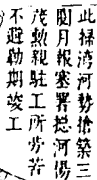 此掃湾河勢偹築三
閲月報塞署捴河楊
茂勲親駐工所劳苦
不避勒期竣工